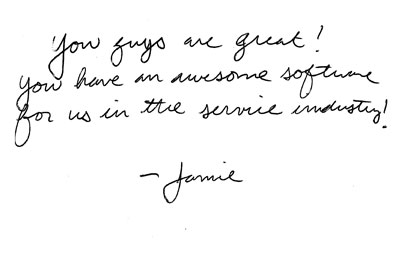 You guys are great!
you have an awesome software
for us in the service industry!
- Jamie